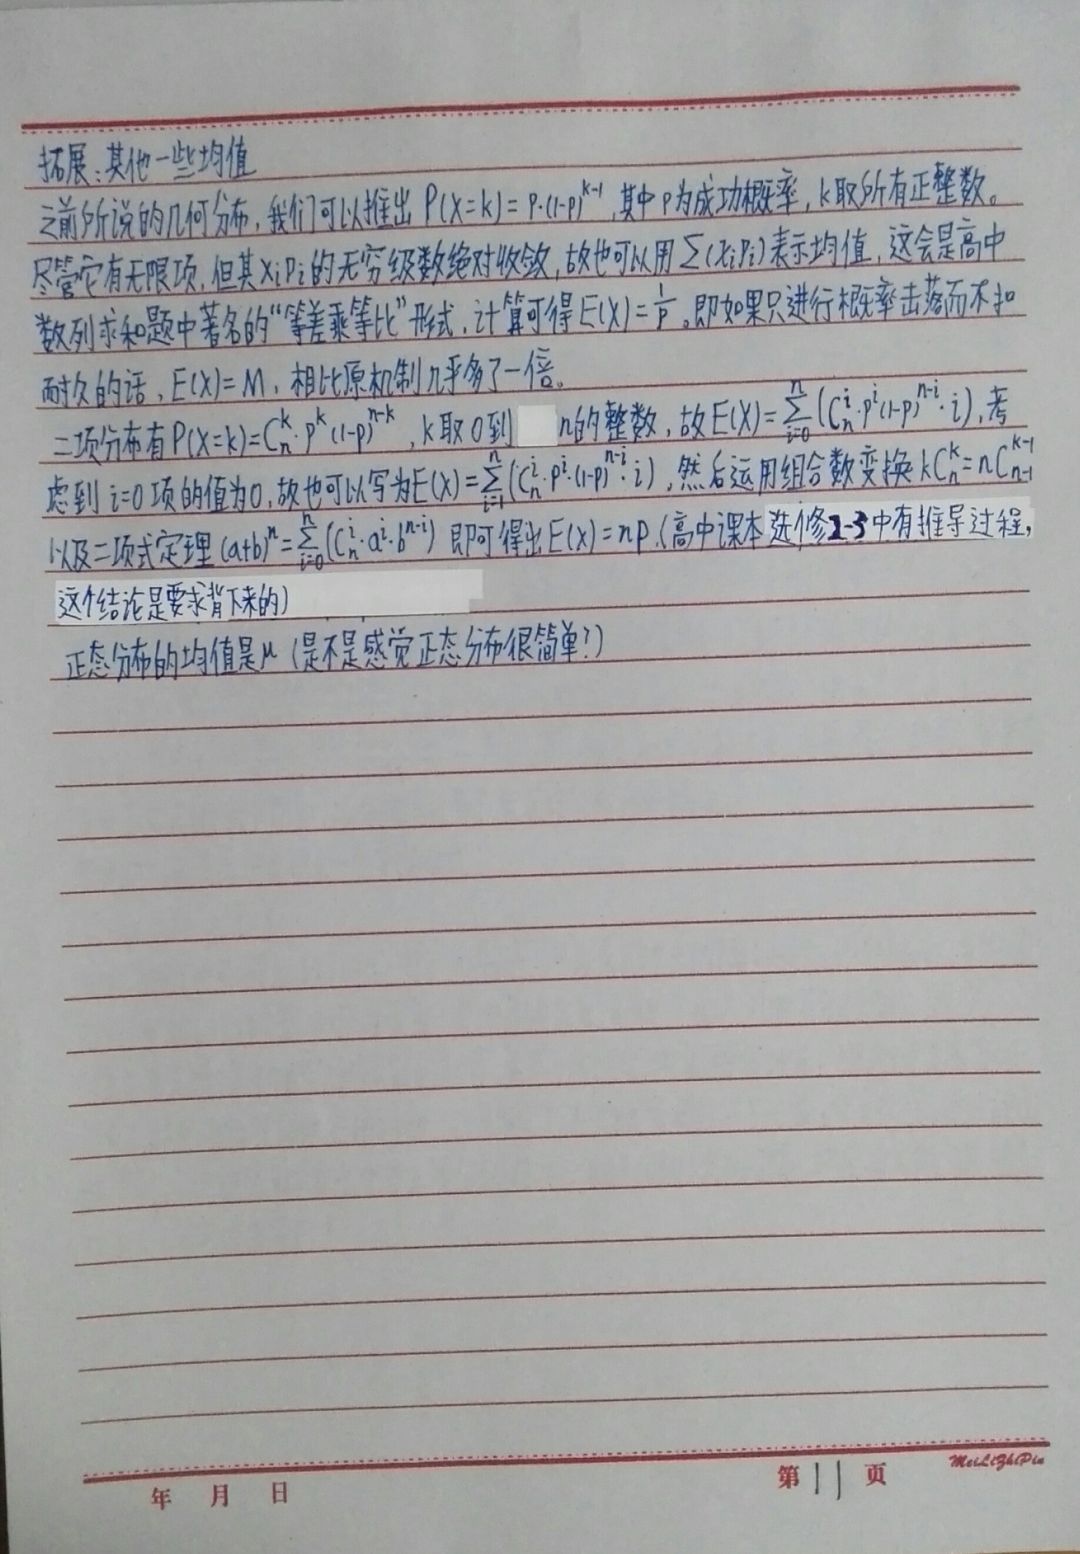 拓展:其他一些均值
之前所说的几何分布,我们可以推出 P(X=k)=P·(1-p)^{k-1},其中p为成功概率,k取所有正整数。
尽管它有无限项,但其XiPi的无穷级数绝对收敛,故也可以用∑(XiPi)表示均值,这会是高中
数列求和题中著名的“等差乘等比”形式,计算可得E(X)=1/p。即如果只进行概率击落而不扣
耐久的话,E(X)=M,相比原机制几乎多了一倍。
二项分布有P(X=k)=C_n^k·p^k(1-p)^{n-k},k取0到n的整数,故E(X)=∑_{i=0}^{n}(C_n^i·p^i(1-p)^{n-i}·i),考
虑到i=0项的值为0,故也可以写为E(X)=∑_{i=1}^{n}(C_n^i·p^i·(1-p)^{n-i}·i),然后运用组合数变换kC_n^k=nC_{n-1}^{k-1}
以及二项式定理(a+b)^n=∑_{i=0}^{n}(C_n^i·a^i·b^{n-i})即可得出E(X)=np.(高中课本选修2-3中有推导过程,
这个结论是要求背下来的)
正态分布的均值是μ(是不是感觉正态分布很简单?)
年 月 日
第11页
MeiLiZhiPin